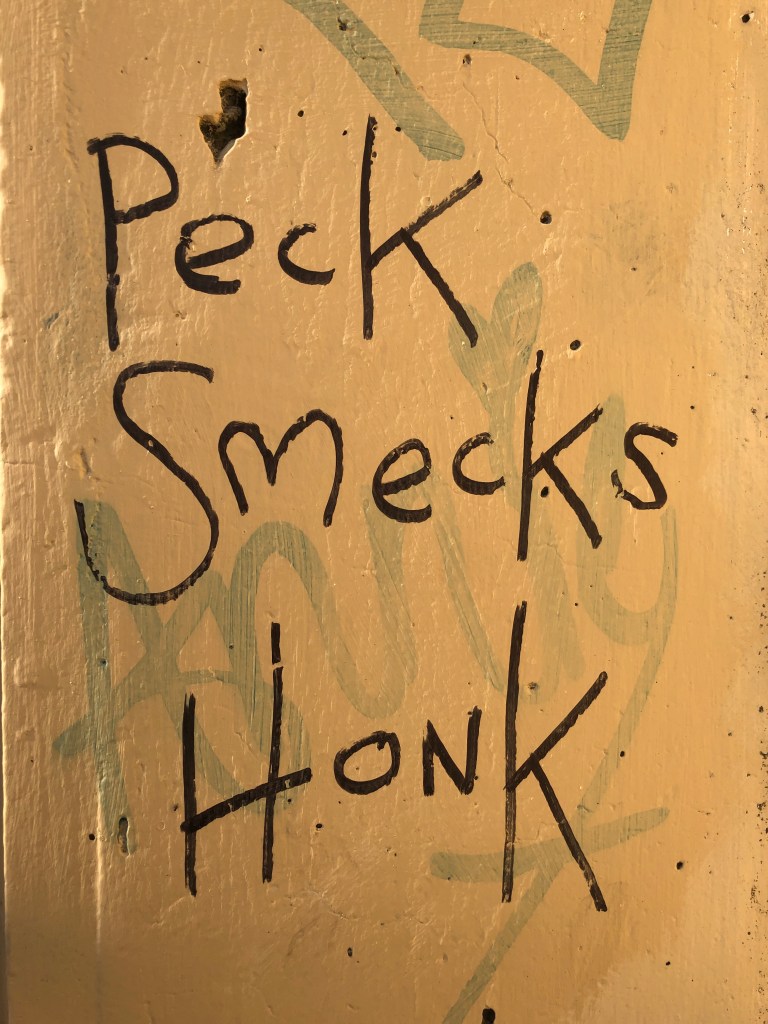 Peck
Smecks
Honk